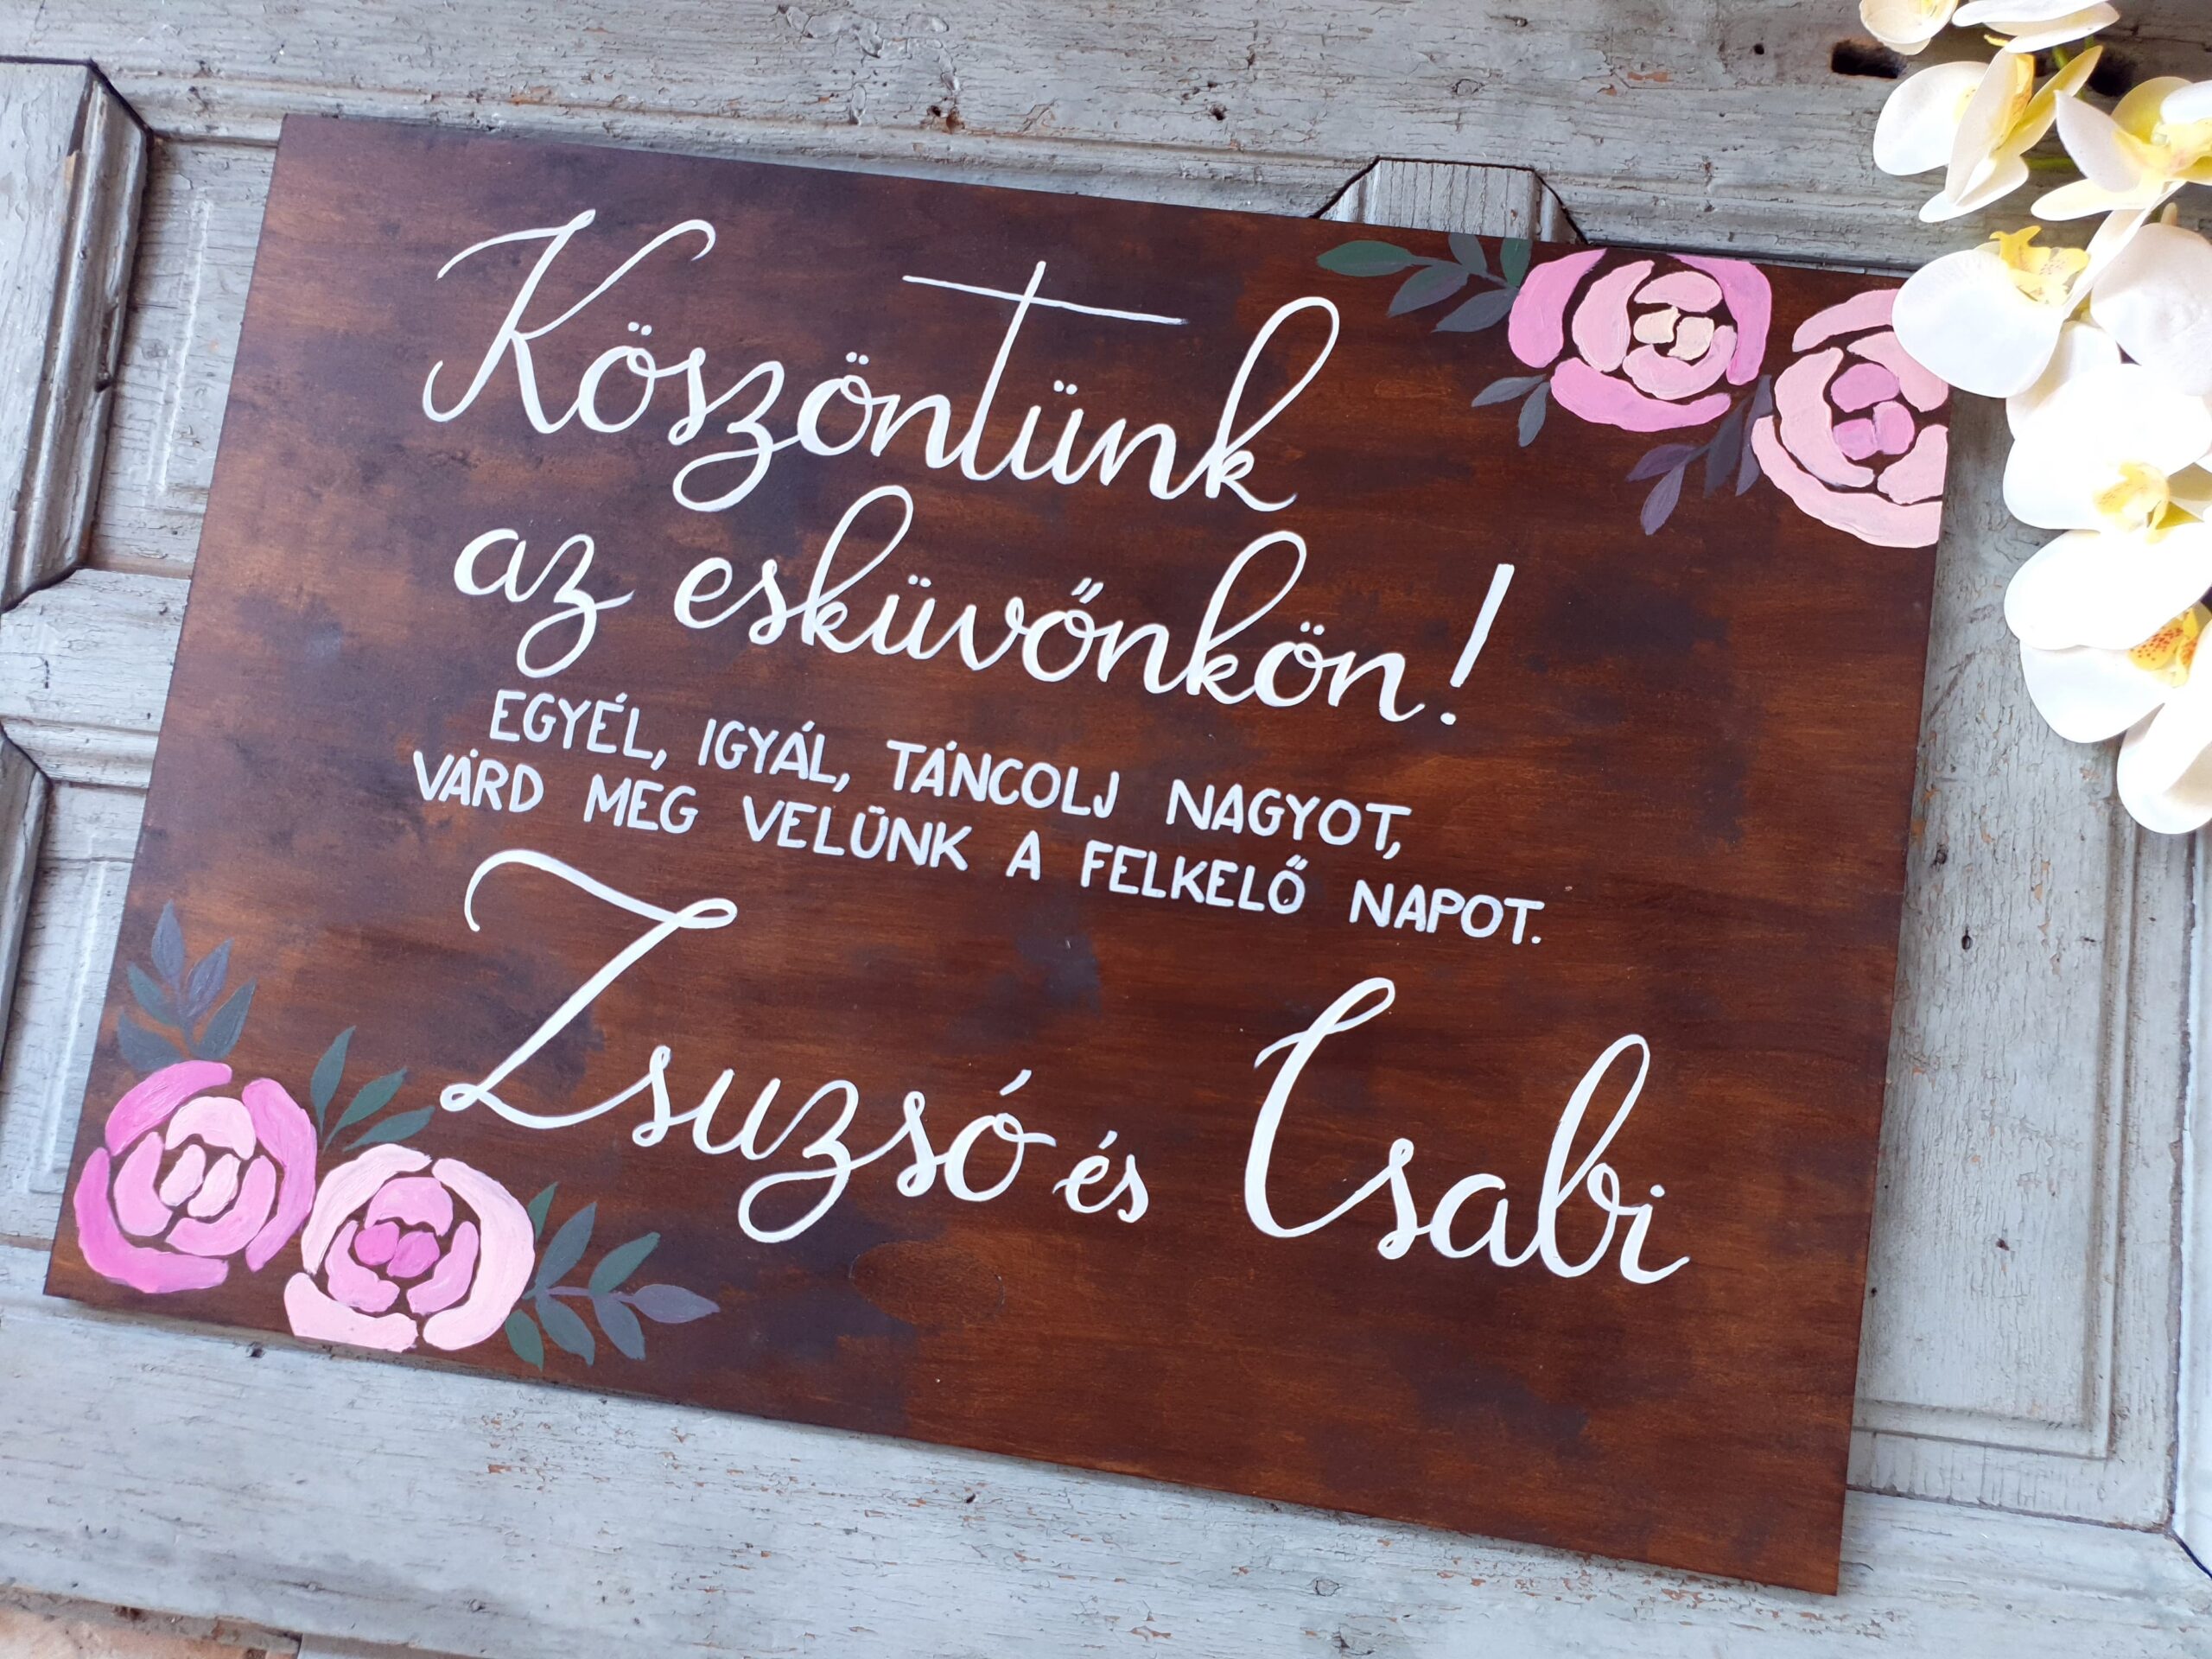 Köszöntünk
az esküvőnkön!
EGYÉL, IGYÁL, TÁNCOLJ NAGYOT,
VÁRD MEG VELÜNK A FELKELŐ NAPOT.
Zsuzsó és Csabi